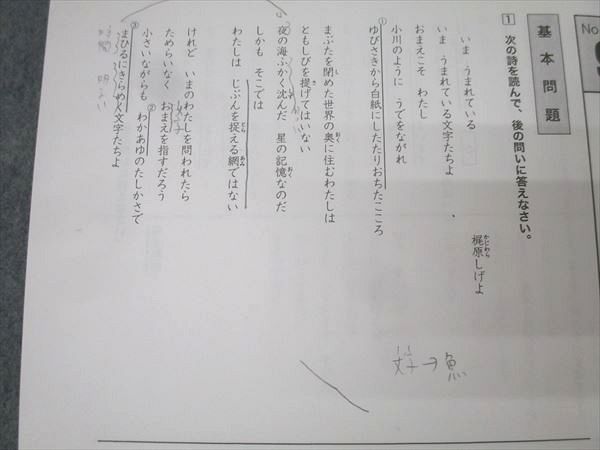 No
基本問題
1 次の詩を読んで、後の問いに答えなさい。
梶原しげよ
かじわら
いま うまれている
いま うまれている文字たちよ
おまえこそ わたし
小川のように うでをながれ
①ゆびさきから白紙にしたたりおちたこころ
まぶたを閉めた世界の奥に住むわたしは
し
おく
ともしびを提げてはいない
さ
夜の海ふかく沈んだ 星の記憶なのだ
おく
しかも そこでは
わたしは じぶんを捉える網ではない
とら
あみ
けれど いまのわたしを問われたら
ためらいなく ②おまえを指すだろう
文字
小さいながらも わかあゆのたしかさで
③まひるにきらめく文字たちよ
明るい
文字→魚